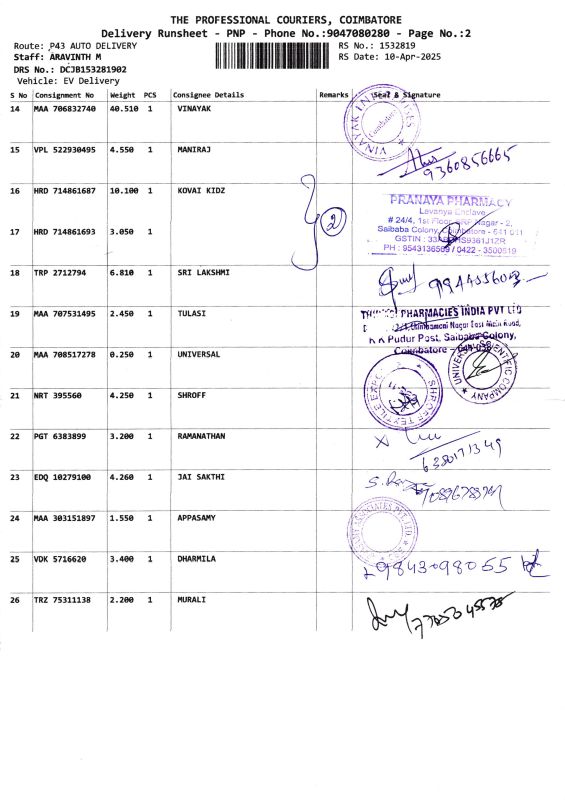 THE PROFESSIONAL COURIERS, COIMBATORE
Delivery Runsheet - PNP - Phone No.:9047080280 - Page No.:2
Route: P43 AUTO DELIVERY RS No.: 1532819
Staff: ARAVINTH M RS Date: 10-Apr-2025
DRS No.: DCJB153281902
Vehicle: EV Delivery
S No Consignment No Weight PCS Consignee Details Remarks Seal & Signature
14 MAA 706832740 40.510 1 VINAYAK
VINAYAK
Coimbatore
15 VPL 522930495 4.550 1 MANIRAJ
9360856665
16 HRD 714861687 10.100 1 KOVAI KIDZ
2
PRANAYA PHARMACY
Lavanya Enclave
# 24/4, 1st Floor, Nagar - 2,
17 HRD 714861693 3.050 1
Saibaba Colony, Coimbatore - 641 011
GSTIN :
PH : / 0422 - 3500519
18 TRP 2712794 6.810 1 SRI LAKSHMI
19 MAA 707531495 2.450 1 TULASI
PHARMACIES INDIA PVT LTD
Chinthamani Nagar East Main Road,
K K Pudur Post, Saibaba Colony,
Coimbatore
20 MAA 708517278 0.250 1 UNIVERSAL
UNIVERSAL SCIENTIFIC COMPANY
21 NRT 395560 4.250 1 SHROFF
SHROFF TEXTILE
22 PGT 6383899 3.200 1 RAMANATHAN
6380171349
23 EDQ 10279100 4.260 1 JAI SAKTHI
24 MAA 303151897 1.550 1 APPASAMY
ASSOCIATES PVT LTD
25 VDK 5716620 3.400 1 DHARMILA
9843098055
26 TRZ 75311138 2.200 1 MURALI